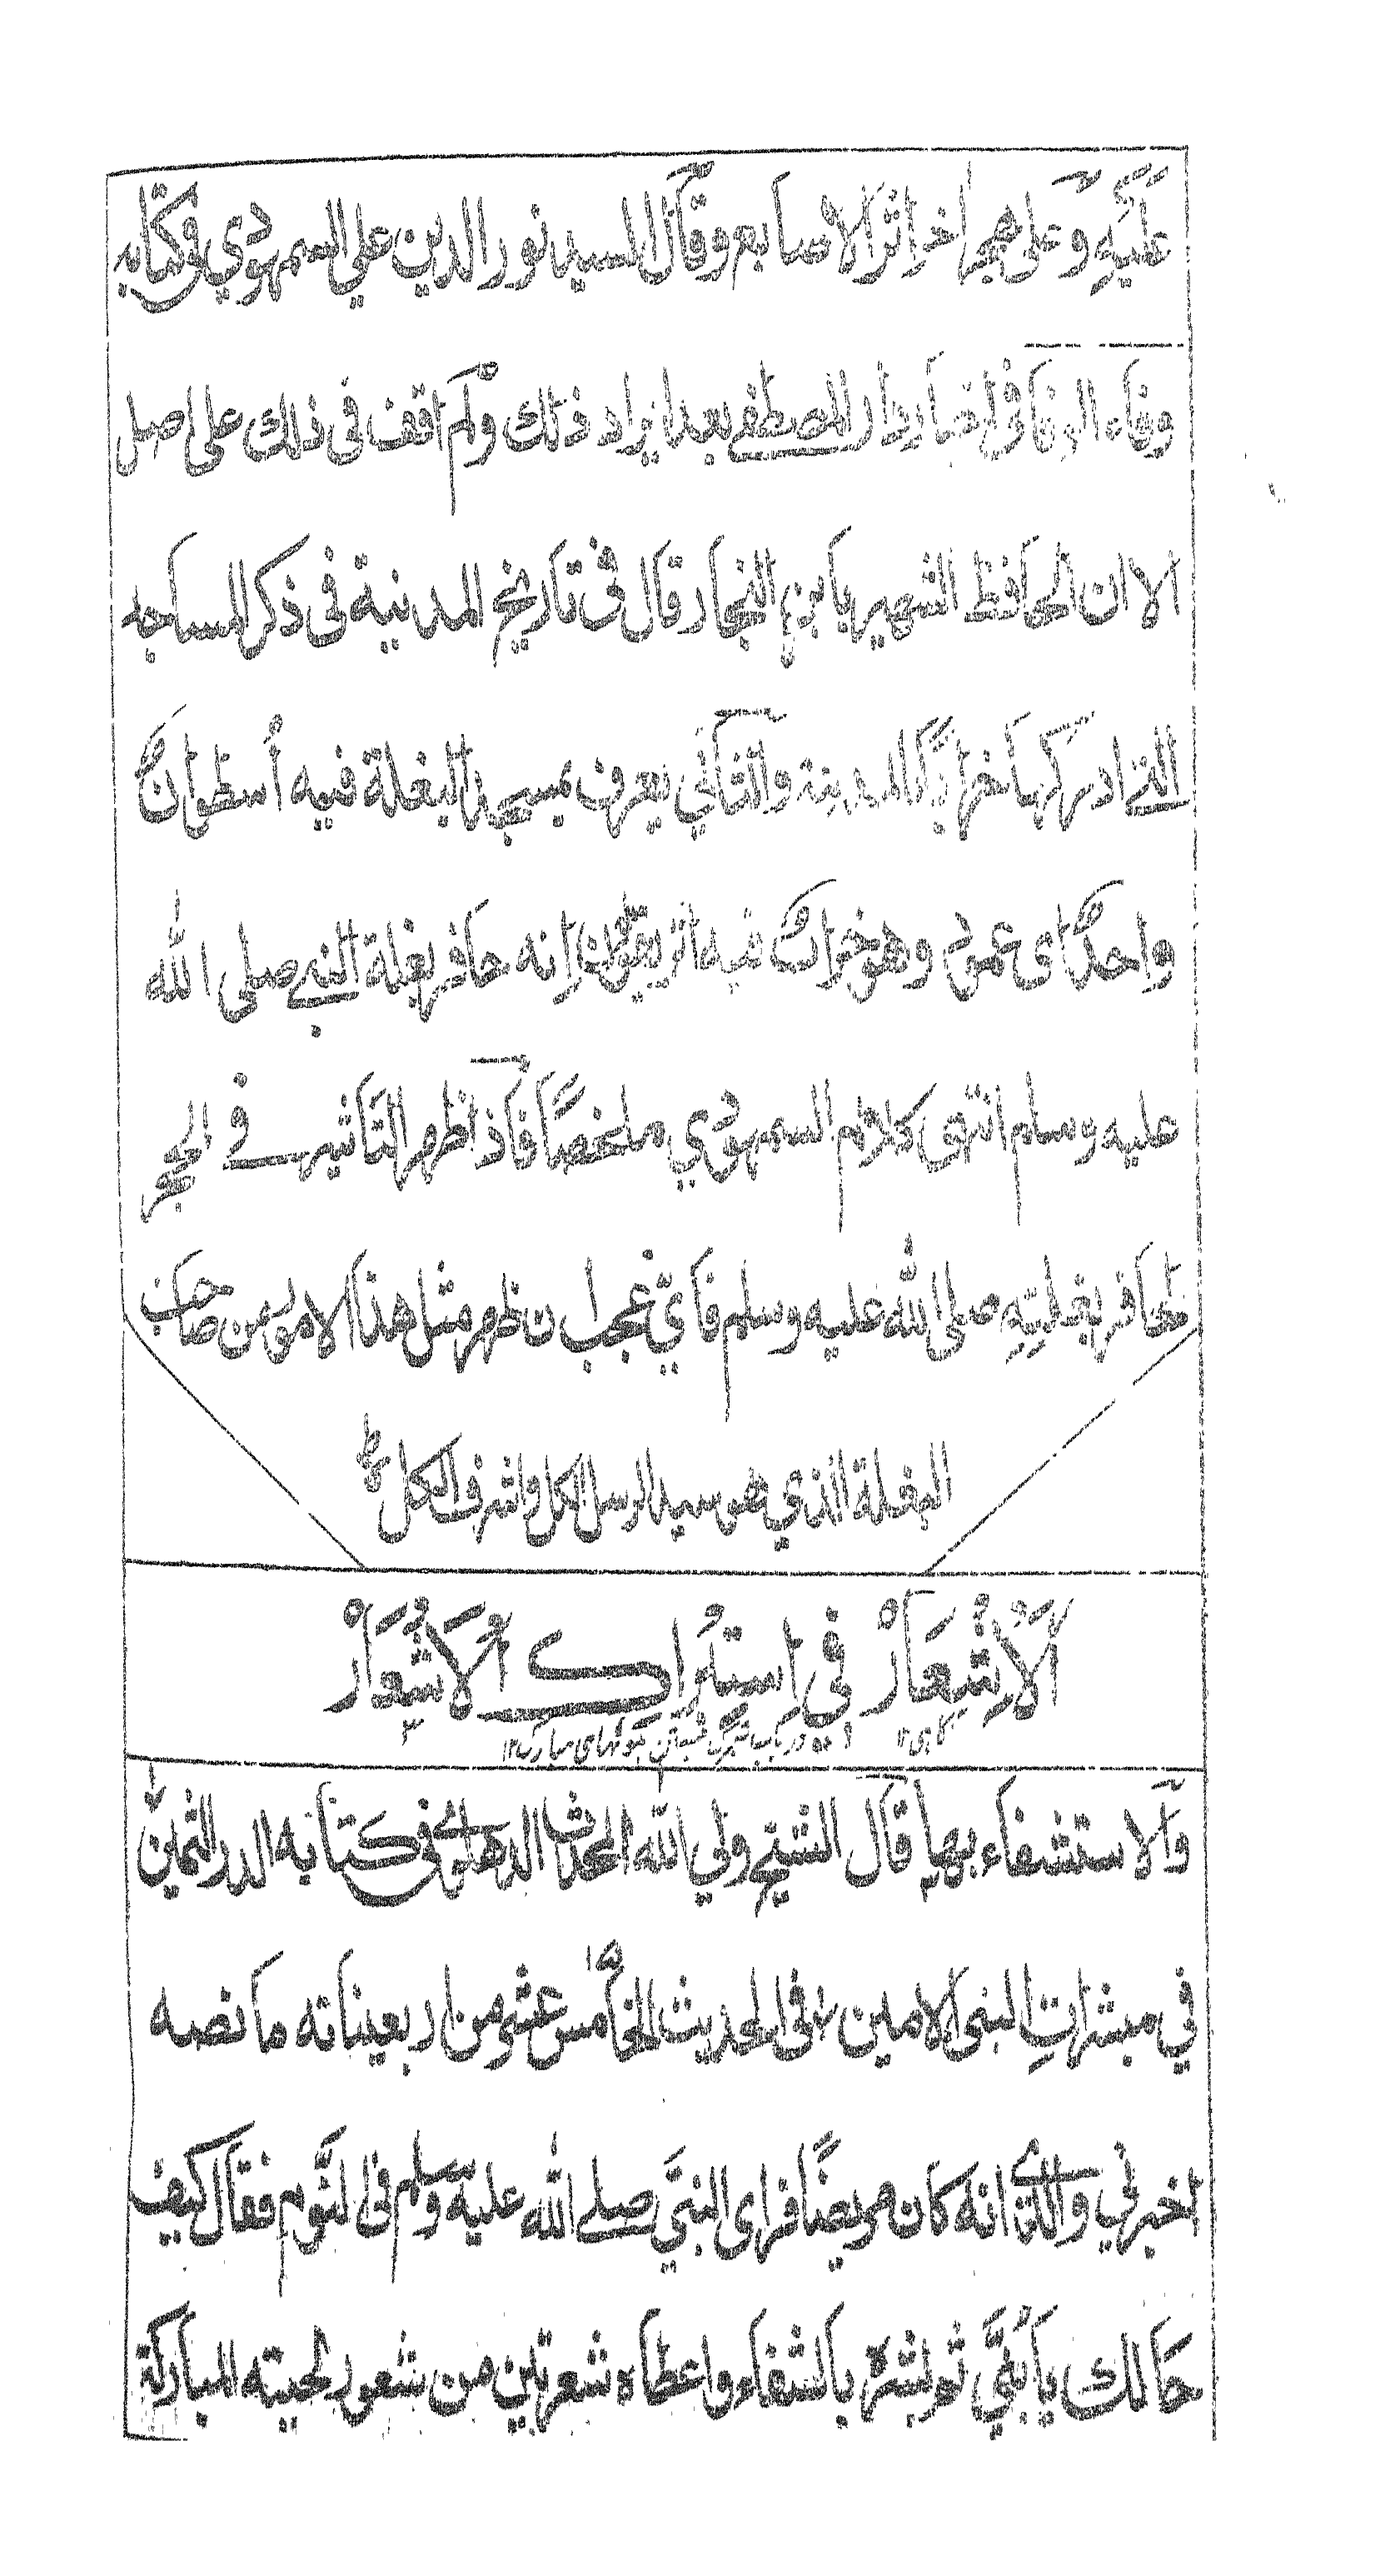 عليه وعلى حجر اخر اثر الاصابع وقال السيد نور الدين علي السمهودي في كتابه
وفاء الوفا في اخبار دار المصطفى بعد ايراد ذلك ولم اقف في ذلك على اصل
الا ان الحافظ الشهير بابن النجار قال في تاريخ المدينة في ذكر المساجد
التي ادركها خرابًا بالمدينة والثاني يعرف بمسجد البغلة فيه أسطوانٌ
واحدٌ اى عمود وهو خرابٌ فيه اثر يقولون انه حافر بغلة النبي صلى الله
عليه وسلم انتهى كلام السمهودي ملخصًا فاذا ظهر التأثير في الحجر
لحافر بغلتهِ صلى الله عليه وسلم فايّ عجب ان ظهر مثل هذا الامور من صاحب
البغلة الذي هو سيد الرسل الكل واشرف الكل
اَلْاِشْعَارْ في اِستبراك اَلْاَشْعَارْ
اگاهى ١٢ در باب تبرک جستن بموئهاى مبارک ١٢
والاستشفاء بها قال الشيخ ولي الله المحدث الدهلوي في كتابه الدر الثمين
في مبشراتِ النبي الامين في الحديث الخامس عشر من اربعيناته ما نصه
اخبرني والدي انه كان مريضًا فراى النبيَّ صلى الله عليه وسلم في النَّوم فقال كيف
حالك يا بُنَيَّ ثم بشره بالشفاء واعطاه شعرتين من شعور لحيته المباركة